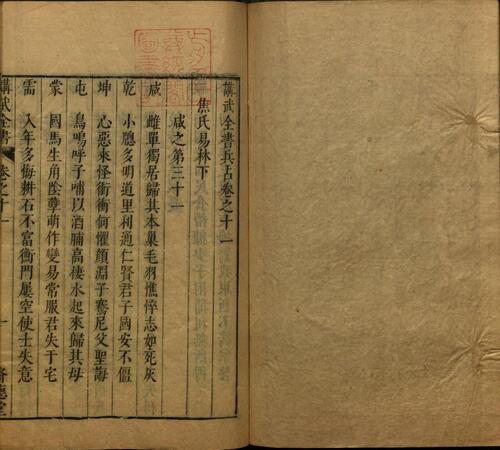 講武全書兵占卷之十一
焦氏易林下
咸之第三十一
咸　雌單獨居歸其本巢毛羽憔悴志如死灰
乾　小聰多明道里利通仁賢君子國安不僵
坤　心惡來怪衝衝何懼顏淵子騫尼父聖誨
屯　鳥鳴呼子哺以酒脯高棲水起來歸其母
蒙　國馬生角陰孽萌作變易常服君失于宅
需　入年多悔耕石不富衡門屢空使士失意
講武全書
卷之十一
一